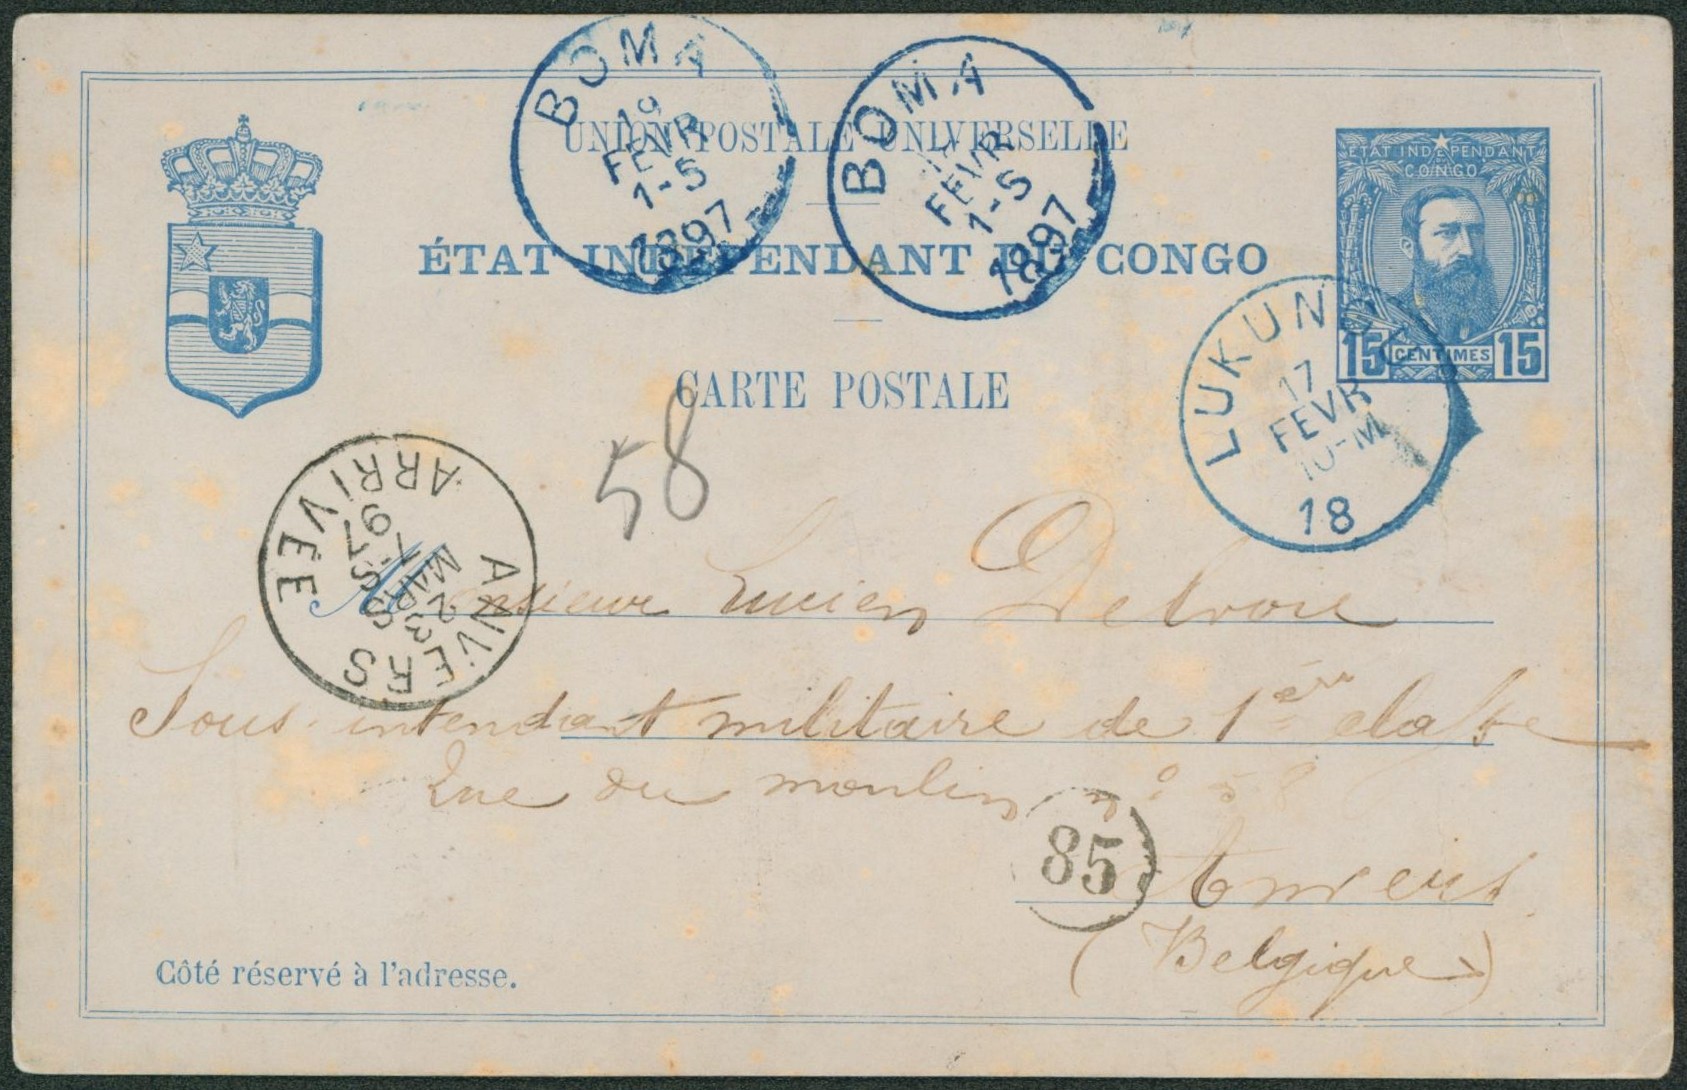 BOMA
19
FEVR
1-S
1897
BOMA
FEVR
1-S
1897
UNION POSTALE UNIVERSELLE
ÉTAT INDÉPENDANT DU CONGO
CARTE POSTALE
ÉTAT INDÉPENDANT
DU
CONGO
15 CENTIMES 15
LUKUNGU
17
FEVR
10-M
18
58
ANVERS
23
MARS
7-S
97
ARRIVÉE
Monsieur Lucien
Sous-intendant militaire de 1ère classe
Rue du moulin n° 58
85
Anvers
(Belgique)
Côté réservé à l'adresse.